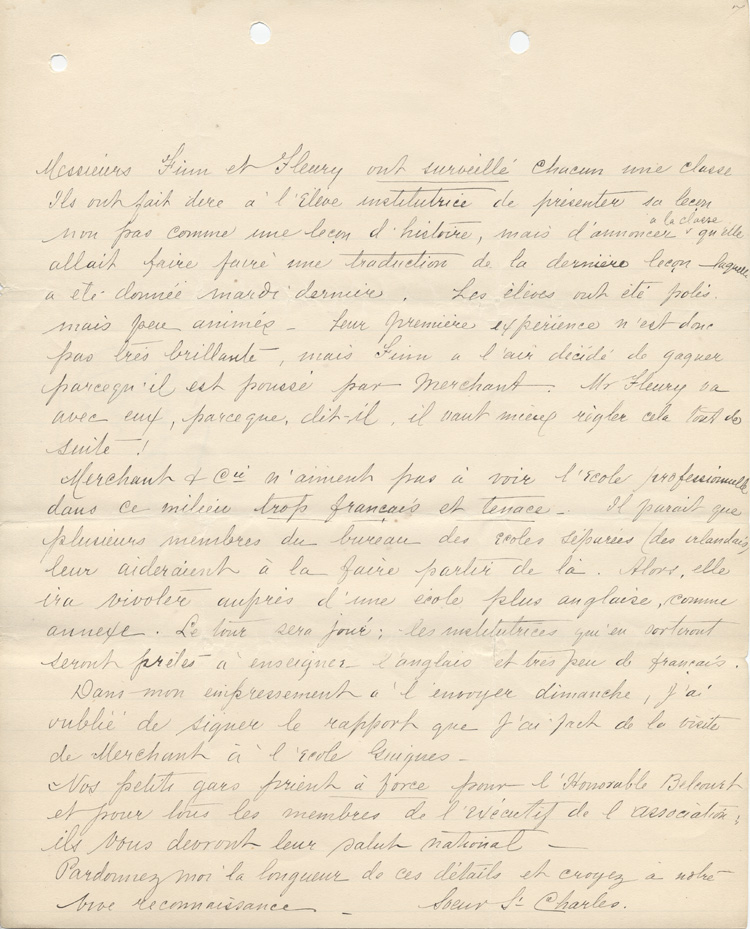 2
Messieurs Finn et Fleury ont surveillé chacun une classe
Ils ont fait dire à l'Elève institutrice de présenter sa leçon
non pas comme une leçon d'histoire, mais d'annoncer à la classe qu'elle
allait faire faire une traduction de la dernière leçon laquelle
a été donnée mardi dernier. Les élèves ont été polis
mais peu animés - Leur première expérience n'est donc
pas très brillante, mais Finn a l'air décidé de gagner
parcequ'il est poussé par Merchant. Mr Fleury va
avec eux, parceque, dit-il, il vaut mieux règler cela tout de
suite!
Merchant & Cie n'aiment pas à voir l'Ecole professionnelle
dans ce milieu trop français et tenace - Il parait que
plusieurs membres du bureau des Ecoles séparées (des irlandais)
leur aideraient à la faire partir de là. Alors, elle
ira vivoter auprès d'une école plus anglaise, comme
annexe. Le tour sera joué; les institutrices qui en sortiront
seront prêtes à enseigner l'anglais et très peu de français.
Dans mon empressement à l'envoyer dimanche, j'ai
oublié de signer le rapport que j'ai fait de la visite
de Merchant à l'Ecole Guigues -
Nos petits gars prient à force pour l'Honorable Belcourt
et pour tous les membres de l'Exécutif de l'association;
ils vous devront leur salut national -
Pardonnez moi la longueur de ces détails et croyez à notre
vive reconnaissance - Soeur St Charles.